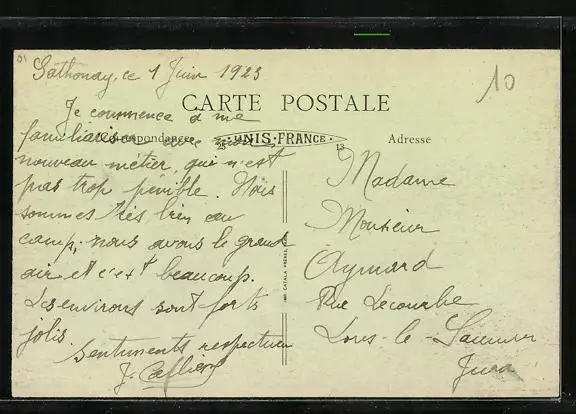 Sathonay, ce 1 Juin 1923
10
CARTE POSTALE
Je commence a me
familiariser avec mon
Correspondance
25 UNIS-FRANCE 13
Adresse
nouveau métier, qui n'est
pas trop pénible. Nous
sommes très bien au
camp, nous avons le grand
air et c'est beaucoup.
Les environs sont forts
jolis.
Sentiments respectueux
J.
Madame
Monsieur
Aymard
Rue Lecourbe
Lons-le-Saunier
Jura
CATALA FRERES